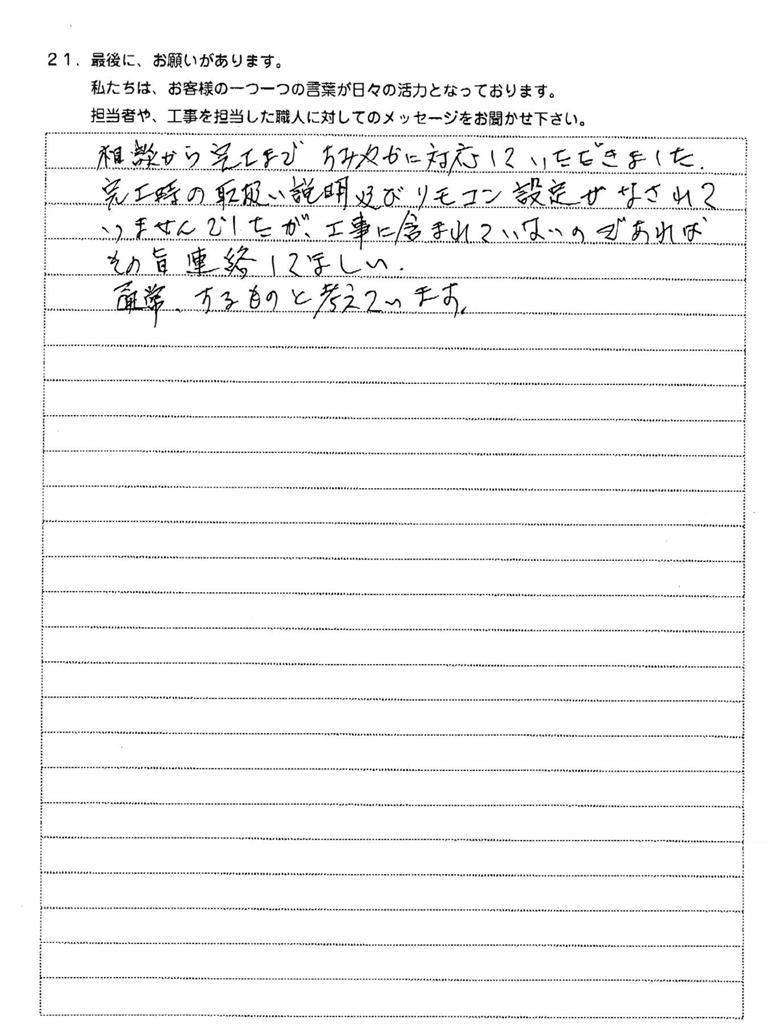 21．最後に、お願いがあります。
私たちは、お客様の一つ一つの言葉が日々の活力となっております。
担当者や、工事を担当した職人に対してのメッセージをお聞かせ下さい。
相談から完工まですみやかに対応していただきました。
完工時の取扱い説明及びリモコン設定がなされて
いませんでしたが、工事に含まれていないのであれば
その旨連絡してほしい。
通常、するものと考えています。